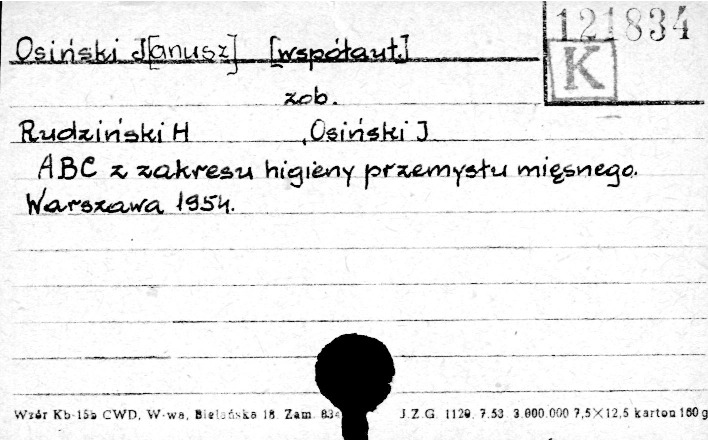 121834
Osiński J[anusz] [współaut.]
K
zob.
Rudziński H , Osiński J
ABC z zakresu higieny przemysłu mięsnego.
Warszawa 1954.
Wzór Kb-15b CWD, W-wa, Bielańska 18. Zam. 834 J.Z.G. 1129. 7.53. 3.000.000 7,5×12,5 karton 160 g